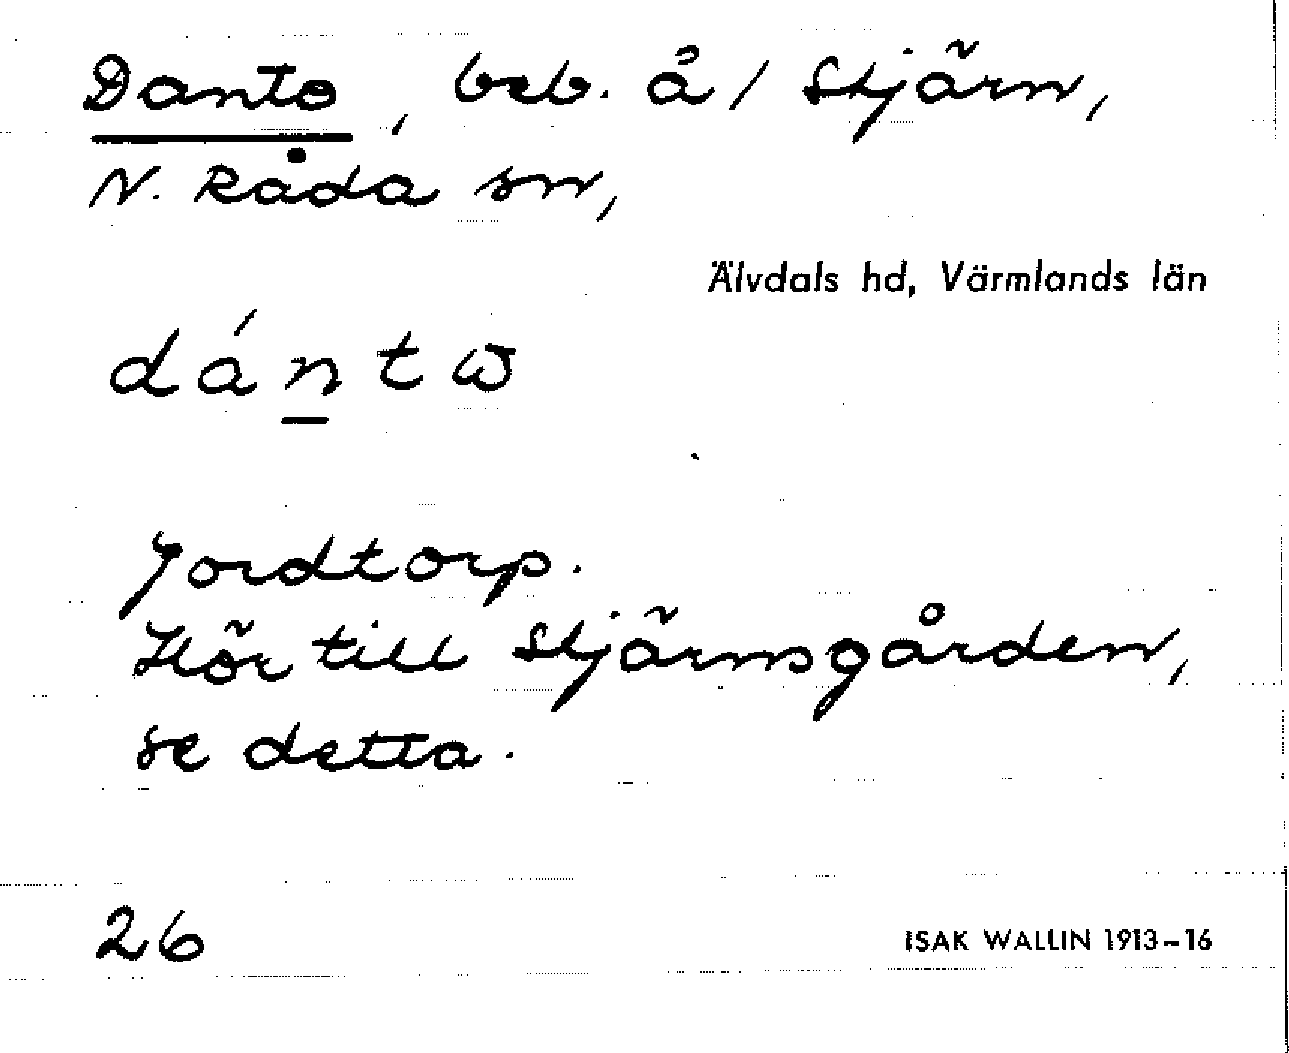 Danto, beb. å / Stjärn,
N. Råda sn,
Älvdals hd, Värmlands län
dántω
Jordtorp.
Hör till Stjärnsgården,
se detta.
26
ISAK WALLIN 1913–16